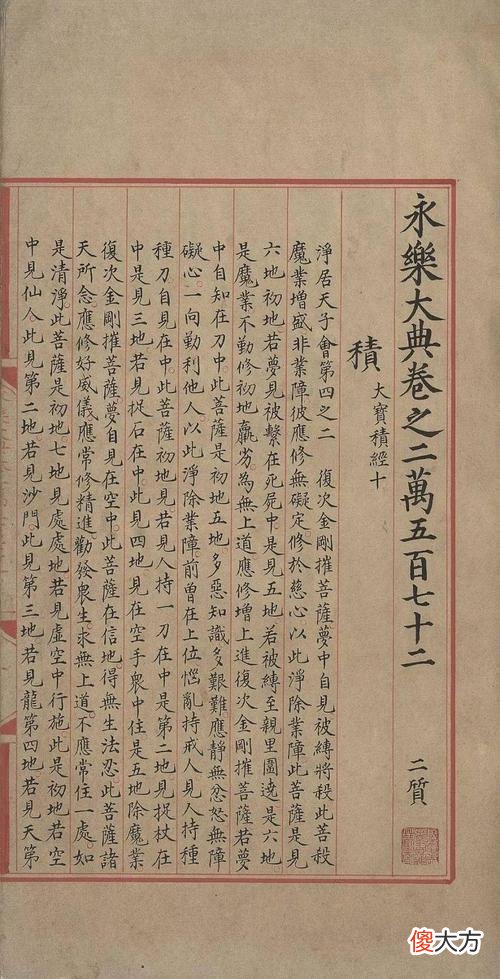 永樂大典卷之二萬五百七十二 二質
積 大寶積經十
淨居天子會第四之二 復次金剛摧菩薩夢中自見被縛將殺此菩殺
魔業增盛非業障彼應修無礙定修於慈心以此淨除業障此菩薩是見
六地初地若夢見被繫在死屍中是見五地若被縛至親里圍遶是六地
是魔業不勤修初地羸劣為無上道應修增上進復次金剛摧菩薩若夢
中自知在刀中此菩薩是初地五地多惡知識多艱難應靜無忿怒無障
礙心一向勤利他人以此淨除業障前曾在上位惱亂持戒人見人持種
種刀自見在中此菩薩初地見若見人持一刀在中是第二地見捉杖在
中是見三地若見捉石在中此見四地見在空手衆中住是五地除魔業
復次金剛摧菩薩夢自見在空中此菩薩在信地得無生法忍此菩薩諸
天所念應修好威儀應常修精進勸發衆生求無上道不應常住一處如
是清淨此菩薩是初地七地見處處地若見虛空中行施此是初地若空
中見仙人此見第二地若見沙門此見第三地若見龍第四地若見天第
傻大方